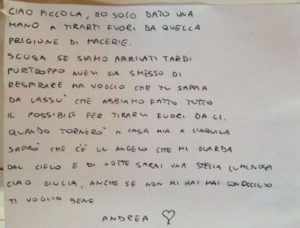 CIAO PICCOLA, HO SOLO DATO UNA
MANO A TIRARTI FUORI DA QUELLA
PRIGIONE DI MACERIE.
SCUSA SE SIAMO ARRIVATI TARDI
PURTROPPO AVEVI GIÀ SMESSO DI
RESPIRARE MA VOGLIO CHE TU SAPPIA
DA LASSU' CHE ABBIAMO FATTO TUTTO
IL POSSIBILE PER TIRARVI FUORI DA LI.
QUANDO TORNERO' A CASA MIA A L'AQUILA
SAPRO' CHE C'È UN ANGELO CHE MI GUARDA
DAL CIELO E DI NOTTE SARAI UNA STELLA LUMINOSA
CIAO GIULIA, ANCHE SE NON MI HAI MAI CONOSCIUTO
TI VOGLIO BENE
ANDREA